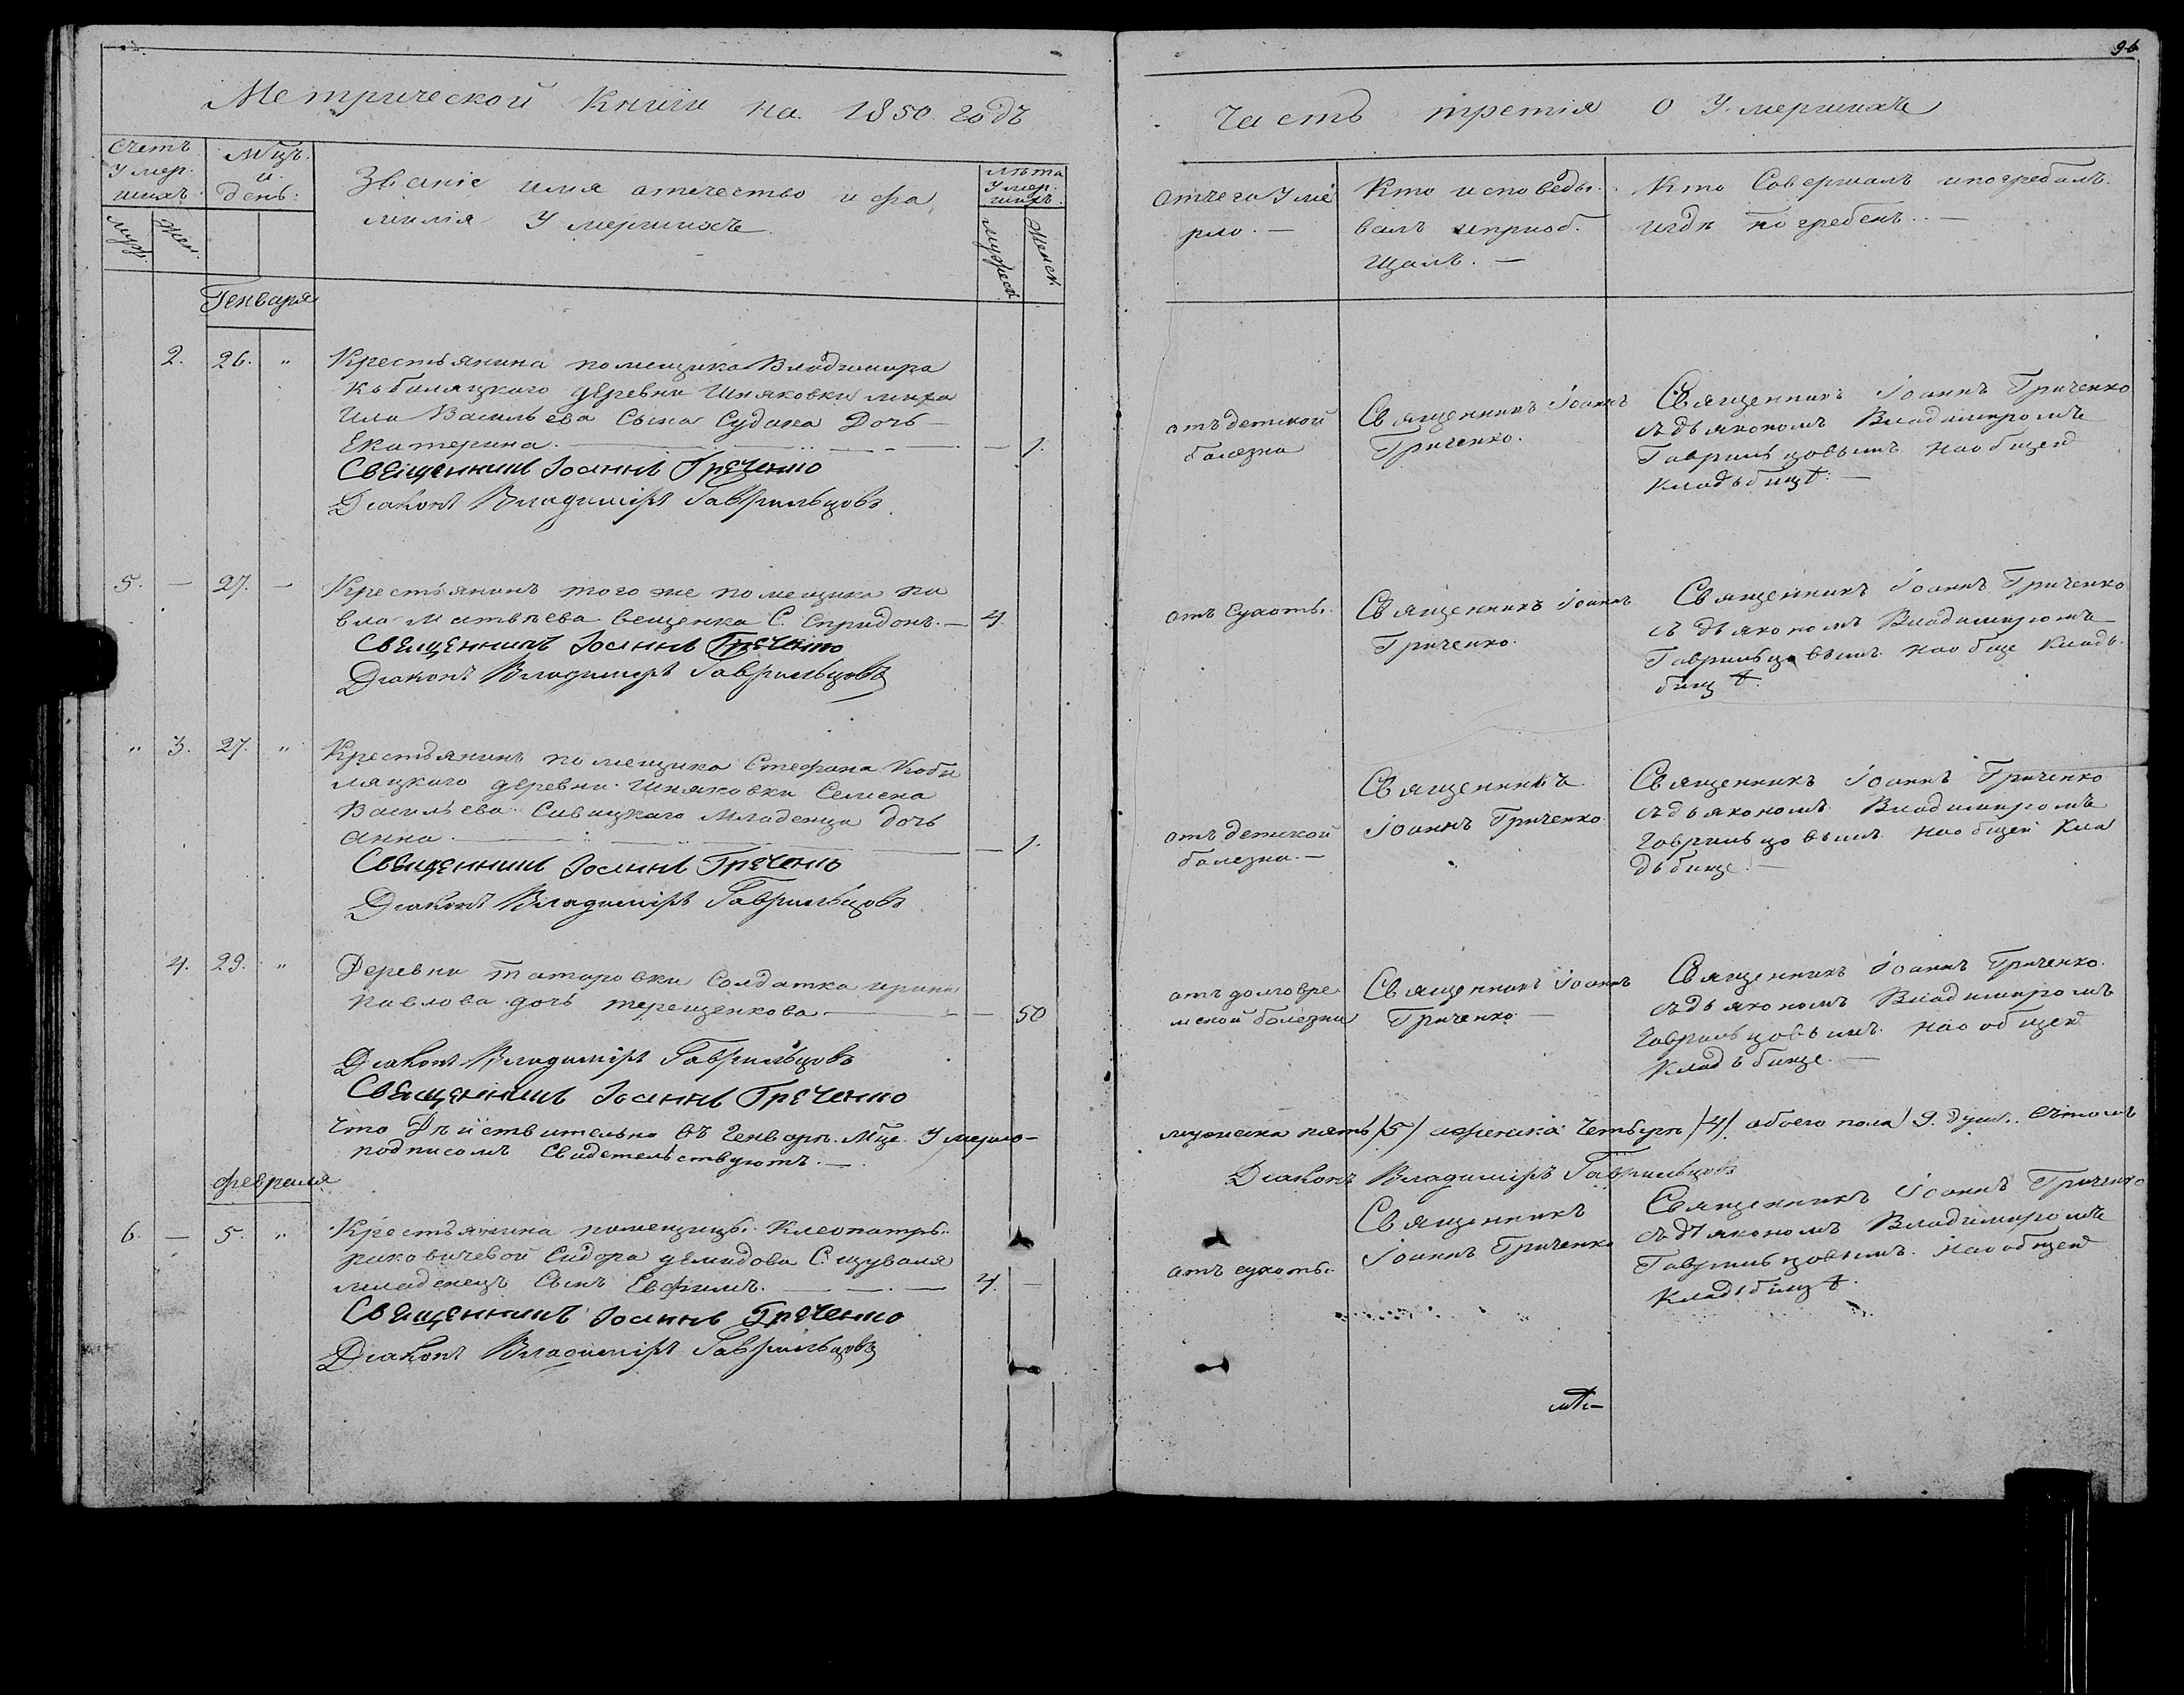 96
Метрической Книги на 1850 годъ
Часть третія о Умершихъ
Счетъ Умер. шихъ.
Мцъ. и день.
Званіе имя отечество и фа
милія Умершихъ
Лѣта Умер. шихъ.
Муж.
Жен.
Мужеск.
Женск.
Отчего Уме
рло. —
Кто исповеды.
валъ иприоб.
щалъ. —
Кто Совершалъ ипогребалъ.
игдѣ погребенъ. —
Генваря
2. 26. "
Крестьянина помещика Владимира
Кобыляцкого деревни Шняковки
Васильева Сына Судака Дочь
Екатерина. — 1.
Священникъ Іоаннъ Греченко
Діаконъ Владиміръ Гаврильцовъ
отъ детской
болезни
Священникъ Іоаннъ
Гриченко.
Священникъ Іоаннъ Гриченко
съдьякономъ Владимиромъ
Гаврильцовымъ наобщей
Кладьбищѣ. —
5. — 27. —
Крестьянинъ того же помещика Па
вла Матвѣева Вещенка С. Спридонъ. — 4
Священникъ Іоаннъ Греченко
Діаконъ Владиміръ Гаврильцовъ
отъ Сухоты.
Священникъ Іоаннъ
Гриченко.
Священникъ Іоаннъ Гриченко
съ дьякономъ Владимиромъ
Гаврильцовымъ наобще Кладь.
бищѣ.
" 3. 27. "
Крестьянинъ помещика Стефана Кобы
ляцкого деревни Шняковки Семена
Васильева Савицкаго Младенца дочь
Анна — 1.
Священникъ Іоаннъ Греченко
Діаконъ Владиміръ Гаврильцовъ
отъ детской
болезни. —
Священникъ
Іоаннъ Гриченко
Священникъ Іоаннъ Гриченко
съдьякономъ Владимиромъ
Гаврильцовымъ наобщей Кла
дьбище. —
4. 29. "
Деревни Татаровки Солдатка Ирина
Павлова дочь Терещенкова — 50
Діаконъ Владиміръ Гаврильцовъ
Священникъ Іоаннъ Греченко
отъ долговре
мской болезни
Священникъ Іоаннъ
Гриченко —
Священникъ Іоаннъ Гриченко.
съдьякономъ Владимиромъ
Гаврильцовымъ наообщей
Кладьбище. —
Что Дѣйствительно въ Генварѣ Мце. Умерло —
мужеска пять /5/ иженска Четыри /4/ обоего пола 9. душъ. Счтомъ
подписомъ Свидетельствуютъ. —
Діаконъ Владиміръ Гаврильцовъ
Февраля
6. — 5. "
Крестьянина помещицы Клеопатры
Раковичевой Сидора Демидова С. Щуваля
младенецъ Сынъ Евфимъ. — 4. —
Священникъ Іоаннъ Греченко
Діаконъ Владиміръ Гаврильцовъ
отъ сухоты.
Священникъ
Іоаннъ Гриченко
Священникъ Іоаннъ Гриченко
съдьякономъ Владимиромъ
Гаврильцовымъ наообщей
Кладьбищѣ.